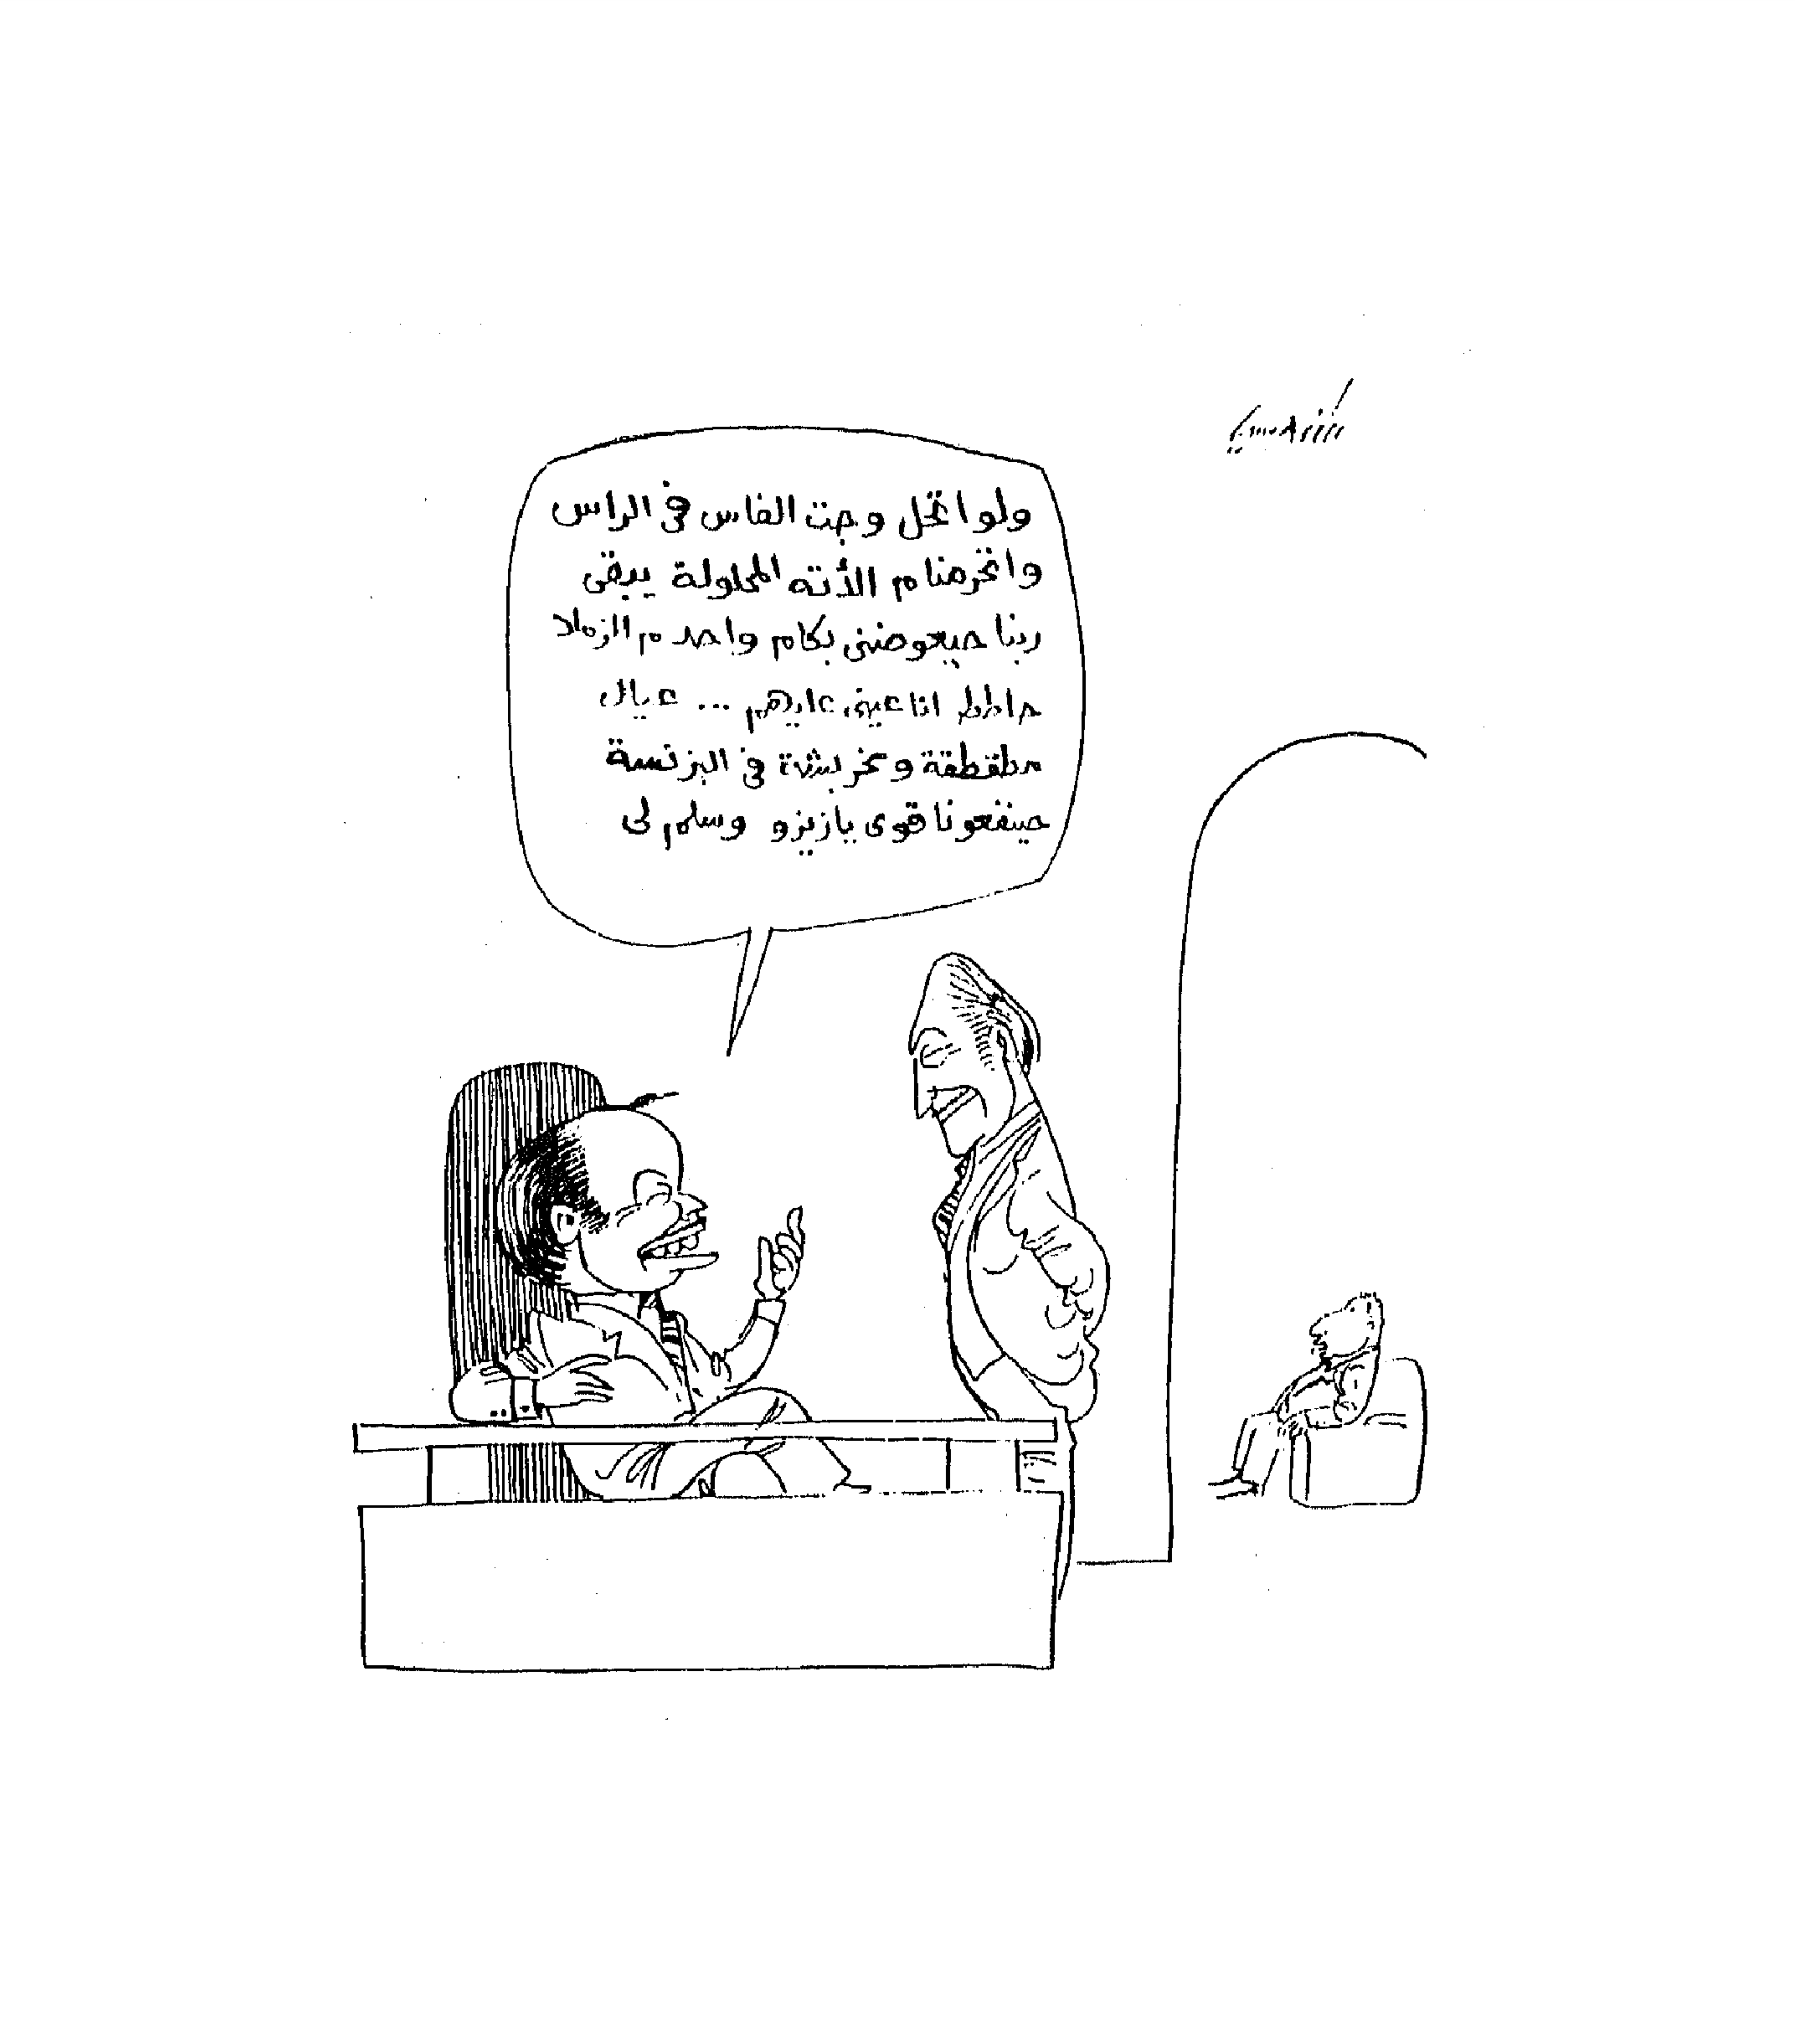 ولو اتحل وجت الفاس فى الراس
واتحرمنا م الأته المحلولة يبقى
ربنا حيعوضنى بكام واحد م الزملا
حاطط انا عينى عليهم ... عيال
مطقطقة ومخربشة فى البزنسة
حينفعونا قوى يازيزو وسلم لى